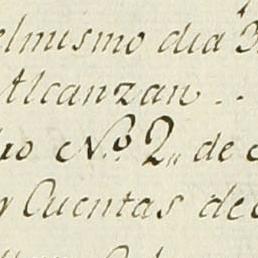 elmismo dia
Alcanzan . .
No. 2,, de
y Cuentas de